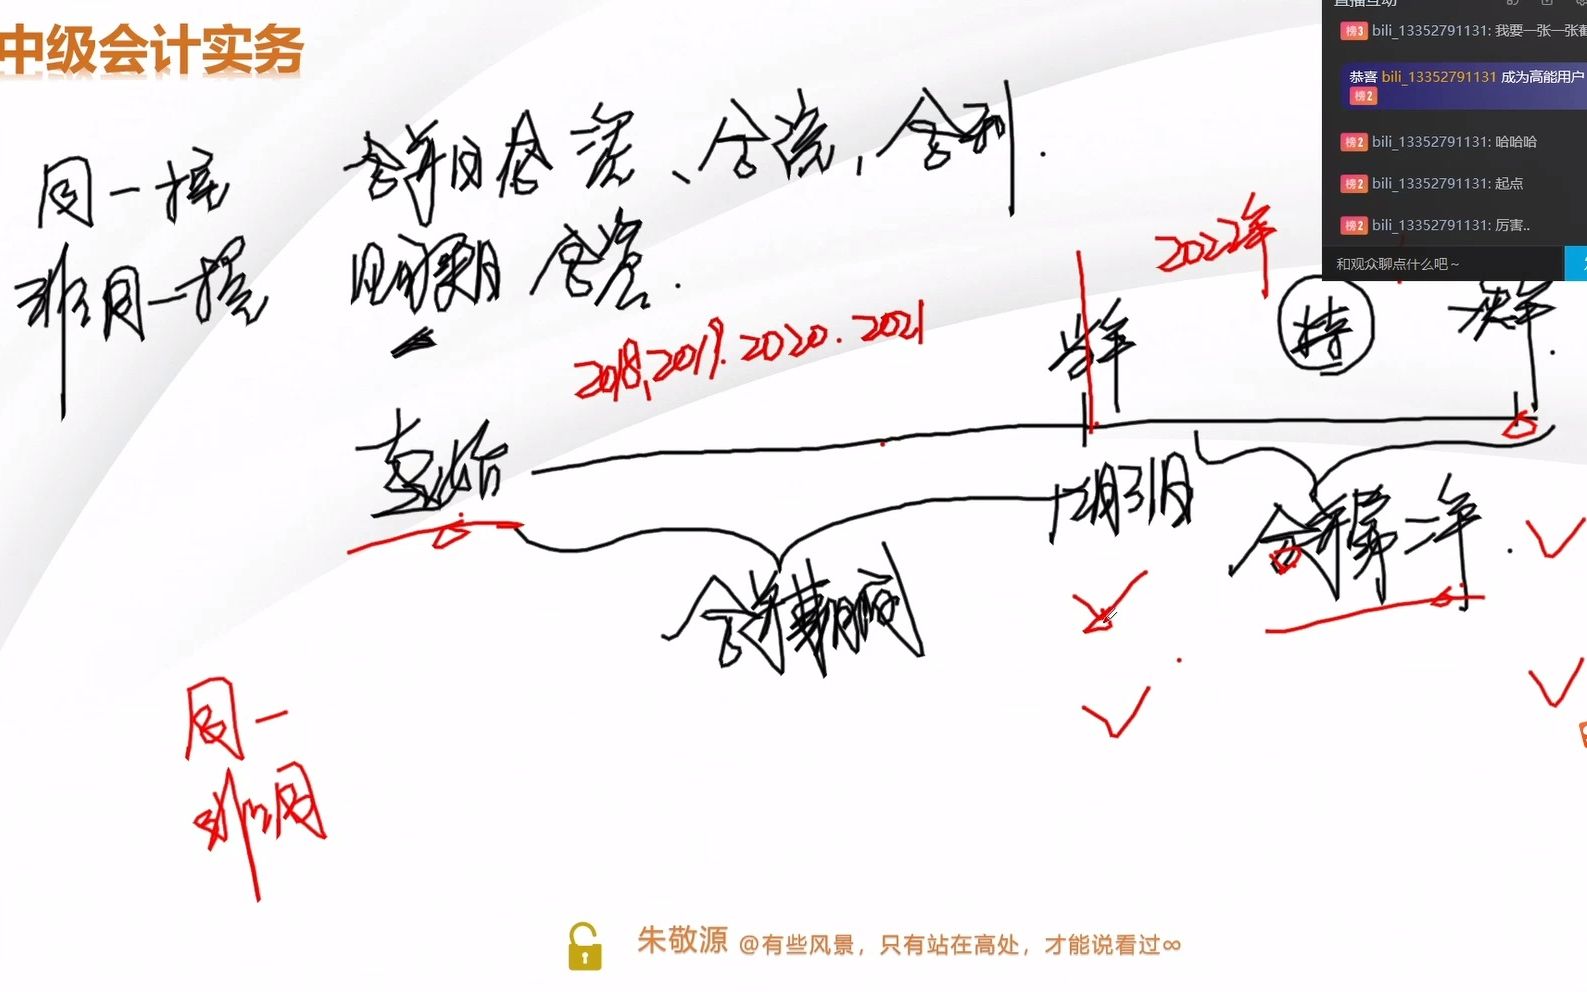 中级会计实务
直播互动
榜3 bili_13352791131: 我要一张一张截
恭喜 bili_13352791131 成为高能用户
榜2
榜2 bili_13352791131: 哈哈哈
榜2 bili_13352791131: 起点
榜2 bili_13352791131: 厉害..
和观众聊点什么吧～
同一控 合并日 合资、合流，合利.
非同一控 购买日 合资.
2018、2019. 2020. 2021
2022年
当年
持
一共年.
12月31日
合并期间
合并第一年.
同一
非同
朱敬源 @有些风景，只有站在高处，才能说看过∞